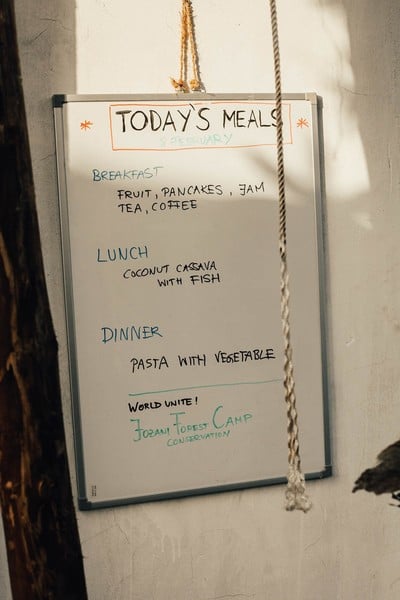 * TODAY'S MEALS *
FEBRUARY
BREAKFAST
FRUIT, PANCAKES, JAM
TEA, COFFEE
LUNCH
COCONUT CASSAVA
WITH FISH
DINNER
PASTA WITH VEGETABLE
WORLD UNITE!
JOZANI FOREST CAMP
CONSERVATION